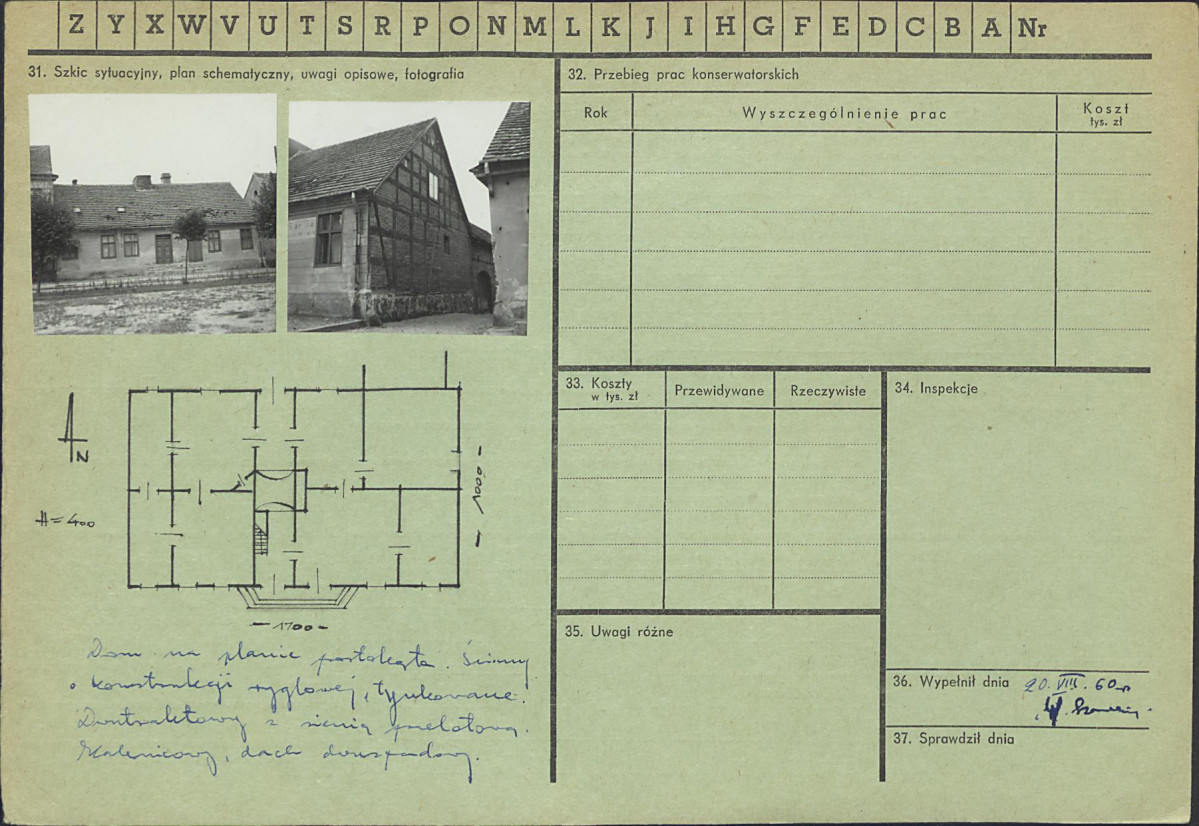 Z Y X W V U T S R P O N M L K J I H G F E D C B A Nr
31. Szkic sytuacyjny, plan schematyczny, uwagi opisowe, fotografia
N
H = 400
- 1000 -
- 1700 -
Dom na planie prostokąta. Ściany
o konstrukcji ryglowej, tynkowane.
Dwutraktowy z sienią przelotową.
Kalenicowy, dach dwuspadowy.
32. Przebieg prac konserwatorskich
Rok
Wyszczególnienie prac
Koszt
tys. zł
33. Koszty
w tys. zł
Przewidywane
Rzeczywiste
34. Inspekcje
35. Uwagi różne
36. Wypełnił dnia 20. VIII. 60 r.
37. Sprawdził dnia